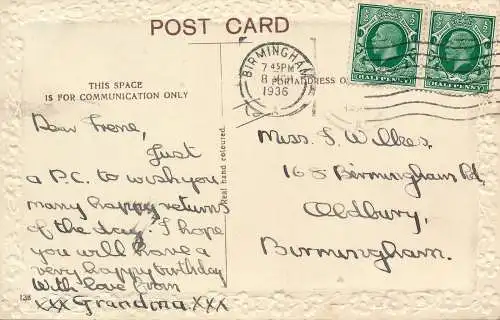 POST CARD
THIS SPACE
IS FOR COMMUNICATION ONLY
BIRMINGHAM
7 45 PM
8 MCH
1936
ADDRESS O
HALFPENNY
HALFPENNY
Dear Irene,
Just
a P.C. to wish you
many happy returns
of the day, I hope
you will have a
very happy birthday
With love from
xxx Grandma. xxx
Real hand coloured.
138
Miss I. Wilkes.
168 Birmingham Rd,
Oldbury,
Birmingham.